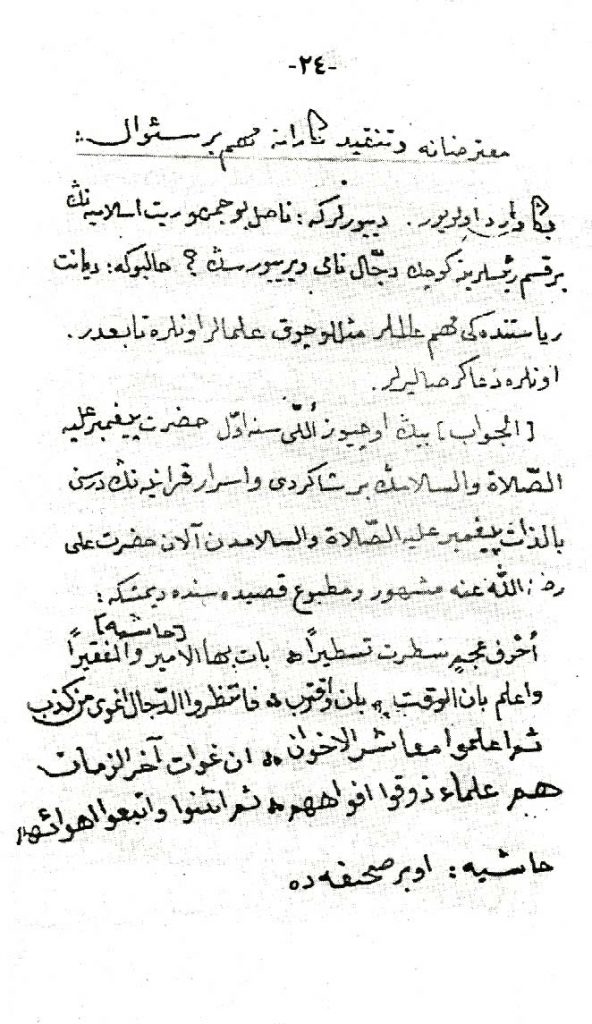 -٢٤-
معترضانه و تنقيدكارانه مهم بر سئوال :
بكا وارد اولويور. ديورلركه: ناصل بو جمهوريت اسلاميه نك
بر قسم رئيسلرينه كوچك دجّال نامى ويرييورسك؟ حالبوكه: ديانت
رياستنده كى مهم عالملر مثللو چوق علمالر اونلره تابعدر.
اونلره دعاكر صاييلرلر.
[الجواب] بيك اوچيوز اللّى سنه اوّل حضرت پيغمبر عليه
الصّلاة والسلامك بر شاكردى و اسرار قرآنيه نك درسنى
بالذات پيغمبر عليه الصّلاة والسلامدن آلان حضرت على
رضى الله عنه مشهور و مطبوع قصيده سنده ديمشكه:
[حاشيه]
احرف عجم سطرت تسطيراً * بات بها الامير والفقيرا
واعلم بان الوقت بان واقترب * فانتظروا الدّجال اغوى من كذب
ثم اعلموا معاشر الاخوان * ان غوات آخر الزمان
هم علماء ذوقوا افواههم * ثم انثنوا واتبعوا اهوائهم
حاشيه: اوبر صحيفه ده